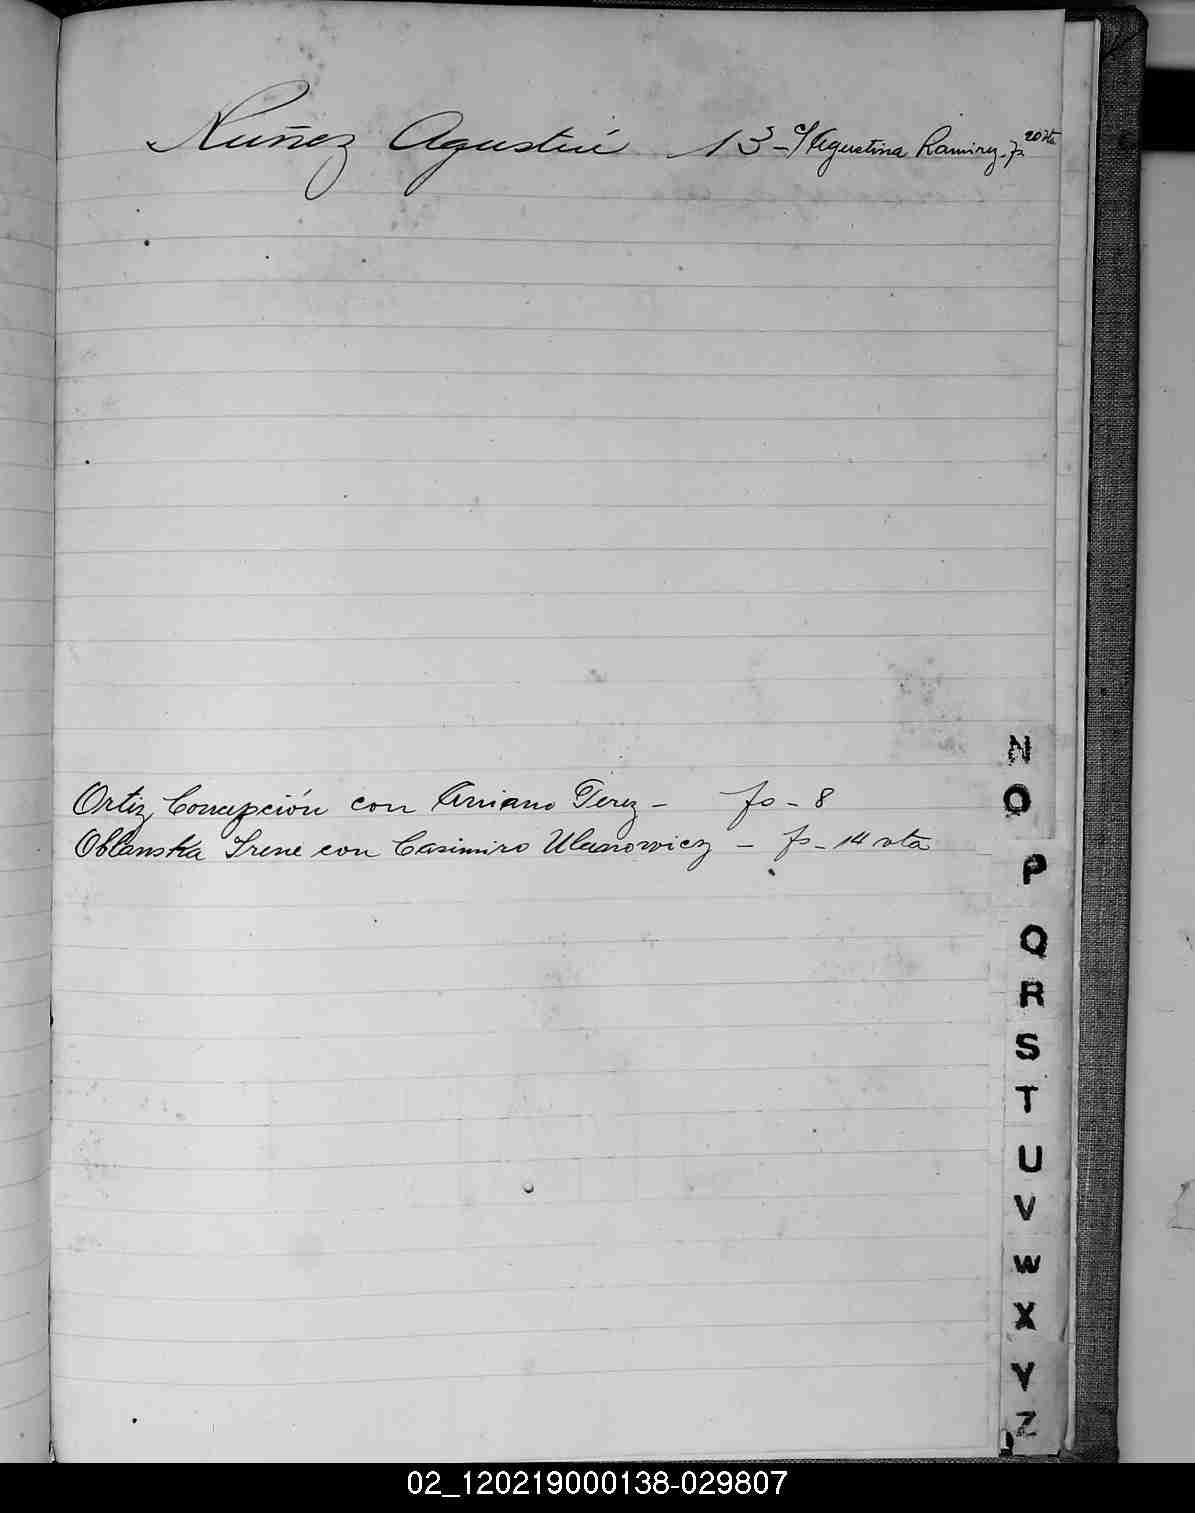 Nuñez Agustín 13 - c/ Agustina Ramirez - fs 20 vta
Ortiz Concepción con Arriano Perez - fs - 8
Oblanska Irene con Casimiro Ulanowicz - fs - 14 vta
N
O
P
Q
R
S
T
U
V
W
X
Y
Z
02_120219000138-029807